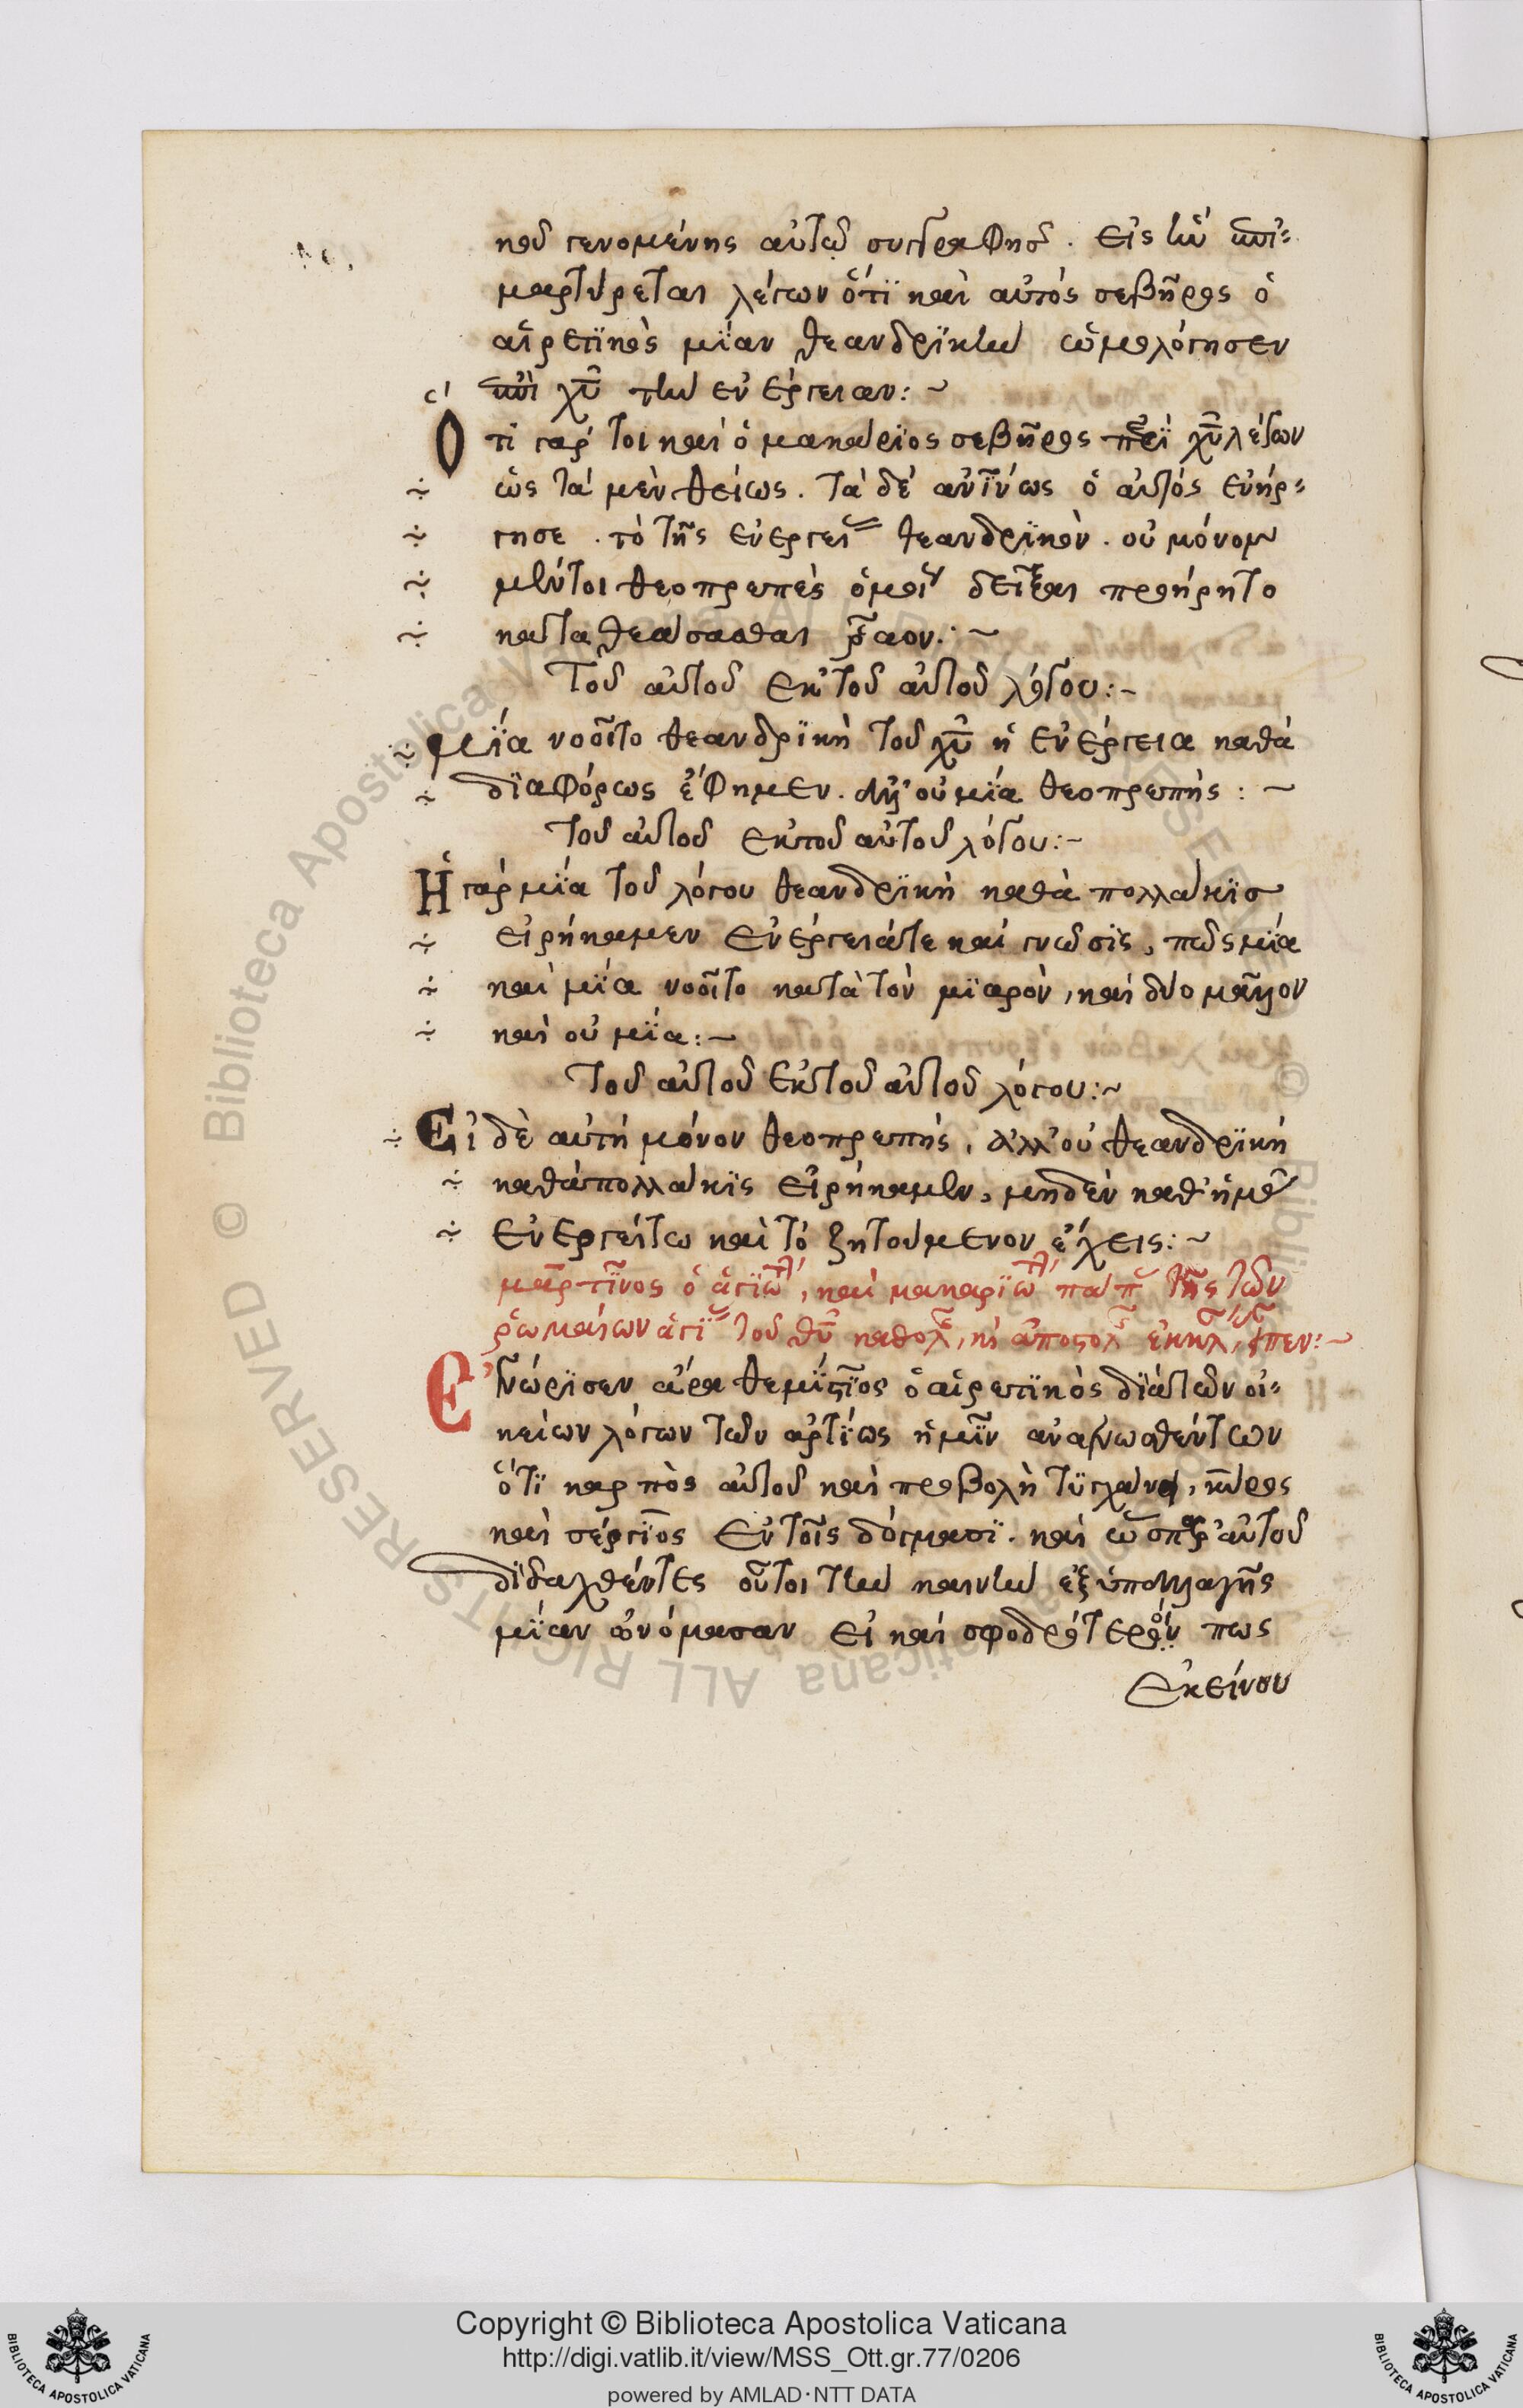 κοῦ γενομένης αὐτῶ συγγραφῆσ. εἰς ἣν ἐπι-
μαρτύρεται λέγων ὅτϊ καὶ αὐτὸς σεβῆρος ὁ
αἱρετϊκὸς μΐαν θεανδρϊκὴν ὡμολόγησεν
ἐπὶ χυ τὴν ἐνέργειαν:~
Ὅτι γάρ τοι καὶ ὁ μακάρϊος σεβῆρος περὶ χυ λέγων
ὡς τὰ μὲν θείως. τὰ δὲ ἀνϊνως ὁ αὐτὸς ἐνήρ-
γησε. τὸ τῆς ἐνεργείας θεανδρϊκὸν. οὐ μόνον
μέντοι θεοπρεπὲς ὁμοῦ δεῖξαι προήρητο
καταθεάσασθαι ῥᾶον:~
Τοῦ αὐτοῦ ἐκ τοῦ αὐτοῦ λόγου:~
μΐα νοοῖτο θεανδρϊκὴ τοῦ χυ ἡ ἐνέργεια καθὰ
δϊαφόρως ἔφημεν. ἀλλ' οὐ μΐα θεοπρεπής:~
Τοῦ αὐτοῦ ἐκ τοῦ αὐτοῦ λόγου:~
Ἡ γὰρ μΐα τοῦ λόγου θεανδρϊκὴ καθὰ πολλάκϊσ
εἰρήκαμεν ἐνέργειά τε καὶ γνῶσϊς, πῶς μΐα
καὶ μΐα νοοῖτο κατὰ τὸν μϊαρὸν, καὶ δύο μᾶλλον
καὶ οὐ μΐα:~
Τοῦ αὐτοῦ ἐκ τοῦ αὐτοῦ λόγου:~
Εἰ δὲ αὐτὴ μόνον θεοπρεπής, ἀλλ' οὐ θεανδρϊκὴ
καθὰ πολλάκϊς εἰρήκαμεν, μηδὲν καθ' ἡμᾶς
ἐνεργείτω καὶ τὸ ζητούμενον ἔχεις:~
μαρτῖνος ὁ ἁγϊώτ, καὶ μακαρϊώτ πάπ τῆς τῶν
ῥωμαίων ἁγϊ τοῦ θυ καθολ, κὶ ἀποστολ ἐκκλ, εἶπεν:~
Ἐγνώρϊσεν ἄρα θεμΐστϊος ὁ αἱρετϊκὸς δϊὰ τῶν οἰ-
κείων λόγων τῶν ἀρτΐως ἡμῖν ἀναγνωσθέντων
ὅτϊ καρπὸς αὐτοῦ καὶ προβολὴ τϋγχάνει, κῦρος
καὶ σέργϊος ἐν τοῖς δόγμασϊ. καὶ ὥσπερ αὐτοῦ
δϊδαχθέντες οὗτοι τὴν καινὴν ἐξ ὑπαλλαγῆς
μΐαν ὠνόμασαν εἰ καὶ σφοδρότερόν πως
ἐκείνου
Copyright © Biblioteca Apostolica Vaticana
http://digi.vatlib.it/view/MSS_Ott.gr.77/0206
powered by AMLAD·NTT DATA